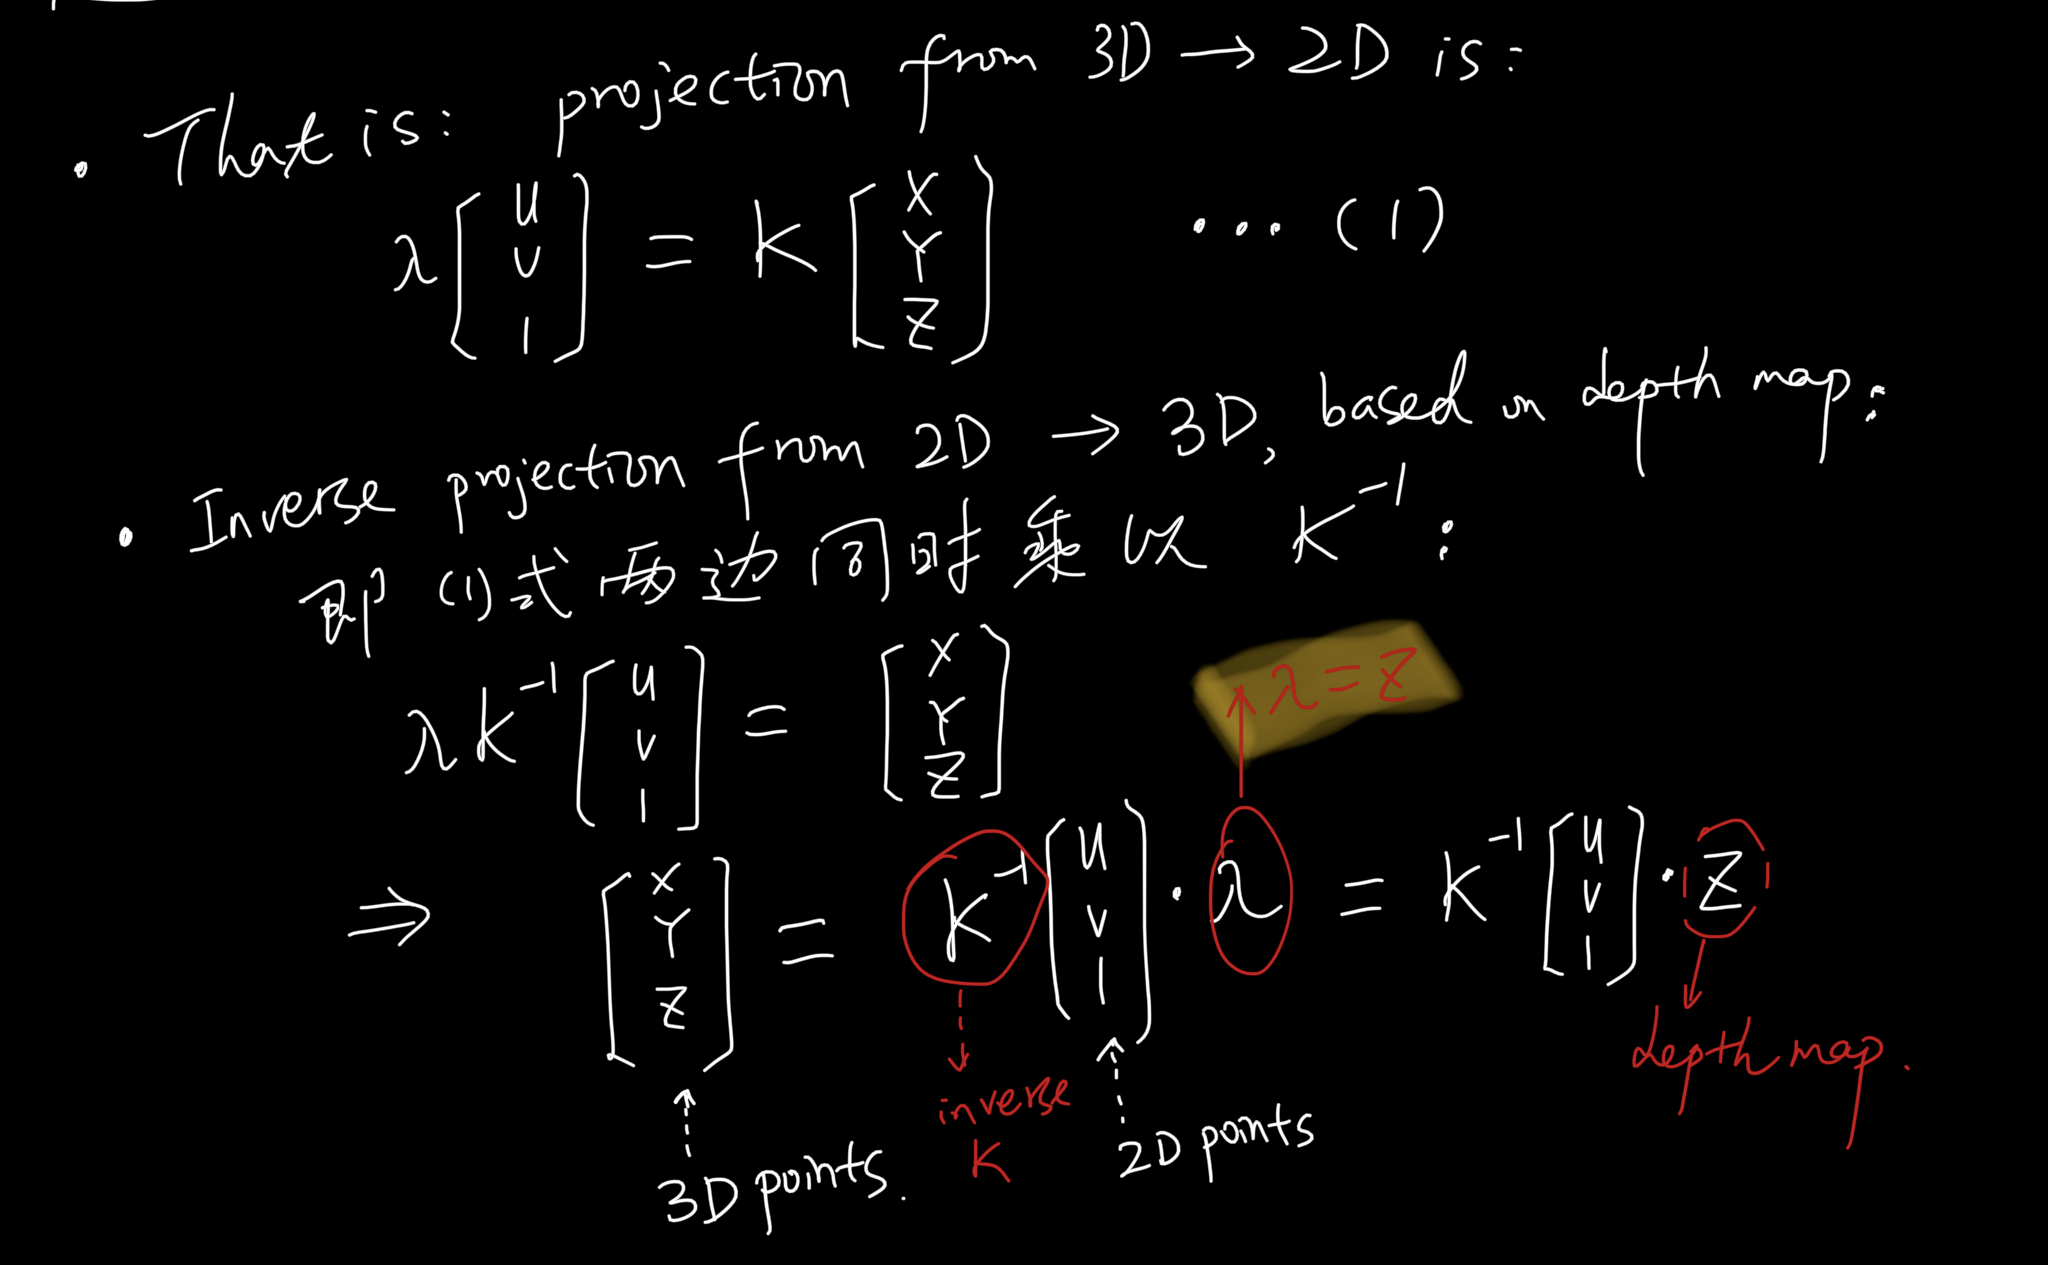 • That is: projection from 3D → 2D is:
λ [u v 1] = K [X Y Z] ... (1)
• Inverse projection from 2D → 3D, based on depth map:
即 (1)式两边同时乘以 K⁻¹:
λ K⁻¹ [u v 1] = [X Y Z]
λ = Z
⇒ [X Y Z] = K⁻¹ [u v 1] · λ = K⁻¹ [u v 1] · Z
depth map.
inverse K
3D points.
2D points